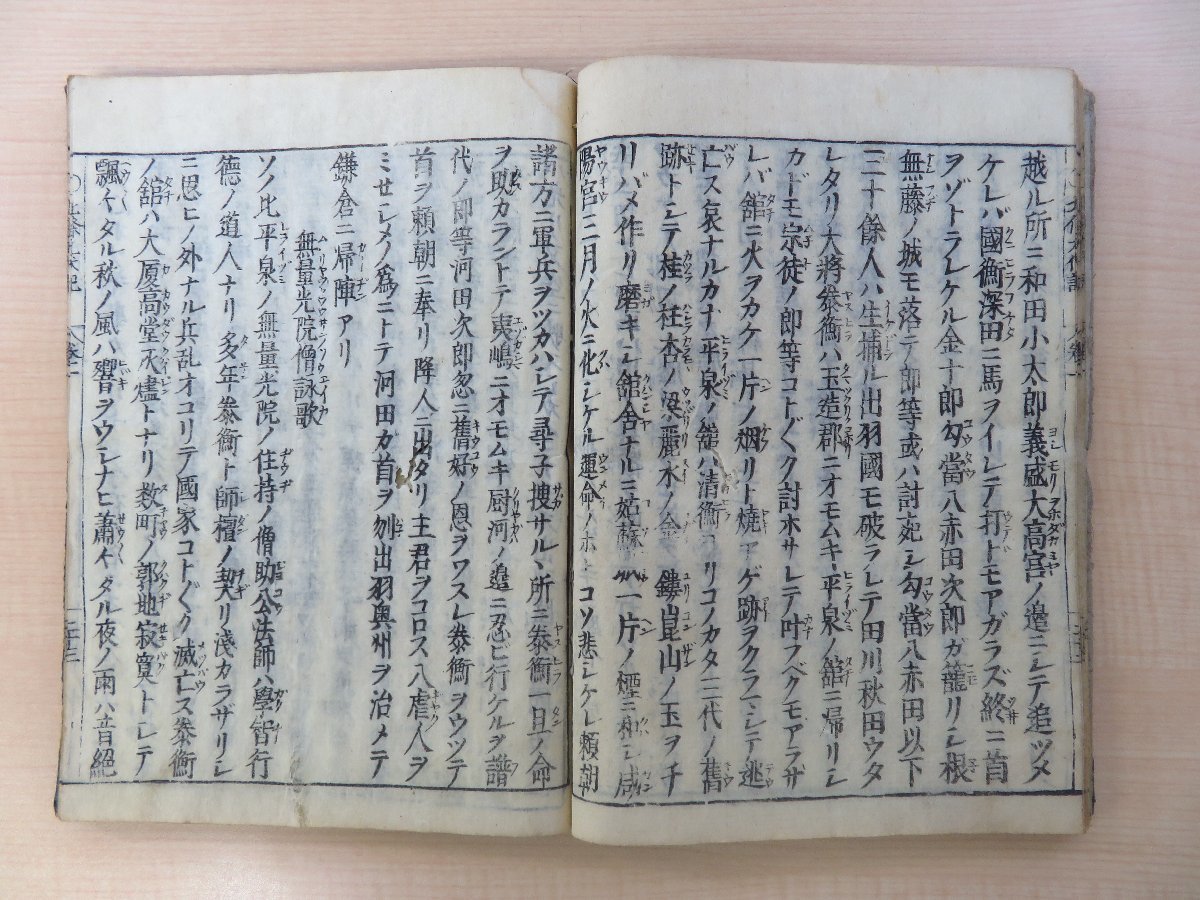 越ル所ニ和田小太郎義盛大高宮ノ邉ニシテ追ツメ
ケレバ國衡深田ニ馬ヲイレテ打トモアガラズ終ニ首
ヲゾトラレケル金十郎勾當八赤田次郎ガ籠リシ根
無藤ノ城モ落テ郎等或ハ討死シ勾當八赤田以下
三十餘人ハ生捕ル出羽國モ破ラレテ田川秋田ウタ
レタリ大將泰衡ハ玉造郡ニオモムキ平泉ノ舘ニ帰リシ
カドモ宗徒ノ郎等コト〴〵ク討ホサレテ叶フベクモアラザ
レバ舘ニ火ヲカケ一片ノ烟リト焼アゲ跡ヲクラマシテ逃
亡ス哀ナルカナ平泉ノ舘ハ清衡ヨリコノカタ三代ノ舊
跡トシテ桂ノ柱杏ノ梁麗水ノ金ヲ鏤崑山ノ玉ヲチ
リバメ作リ磨キシ舘舎ナルニ姑蘇 一片ノ煙ニ和シ咸
陽宮三月ノ火ニ化シケル運命ノホドコソ悲シケレ頼朝
諸方ニ軍兵ヲツカハシテ尋子捜サルヽ所ニ泰衡一旦ノ命
ヲ助カラントテ夷嶋ニオモムキ厨河ノ邉ニ忍ビ行ケルヲ譜
代ノ郎等河田次郎忽ニ舊好ノ恩ヲワスレ泰衡ヲウツテ
首ヲ頼朝ニ奉リ降人ニ出タリ主君ヲコロス八虐人ヲ
ミセシメノ爲ニトテ河田ガ首ヲ刎出羽奥州ヲ治メテ
鎌倉ニ帰陣アリ
無量光院僧詠歌
ソノ比平泉ノ無量光院ノ住持ノ僧助公法師ハ學智行
徳ノ道人ナリ多年泰衡ト師檀ノ契リ淺カラザリシ
ニ思ヒノ外ナル兵乱オコリテ國家コト〴〵ク滅亡ス泰衡
ノ舘ハ大厦高堂灰燼トナリ数町ノ郭地寂寞トシテ
飄々タル秋ノ風ハ響ヲウシナヒ蕭々タル夜ノ雨ハ音絶